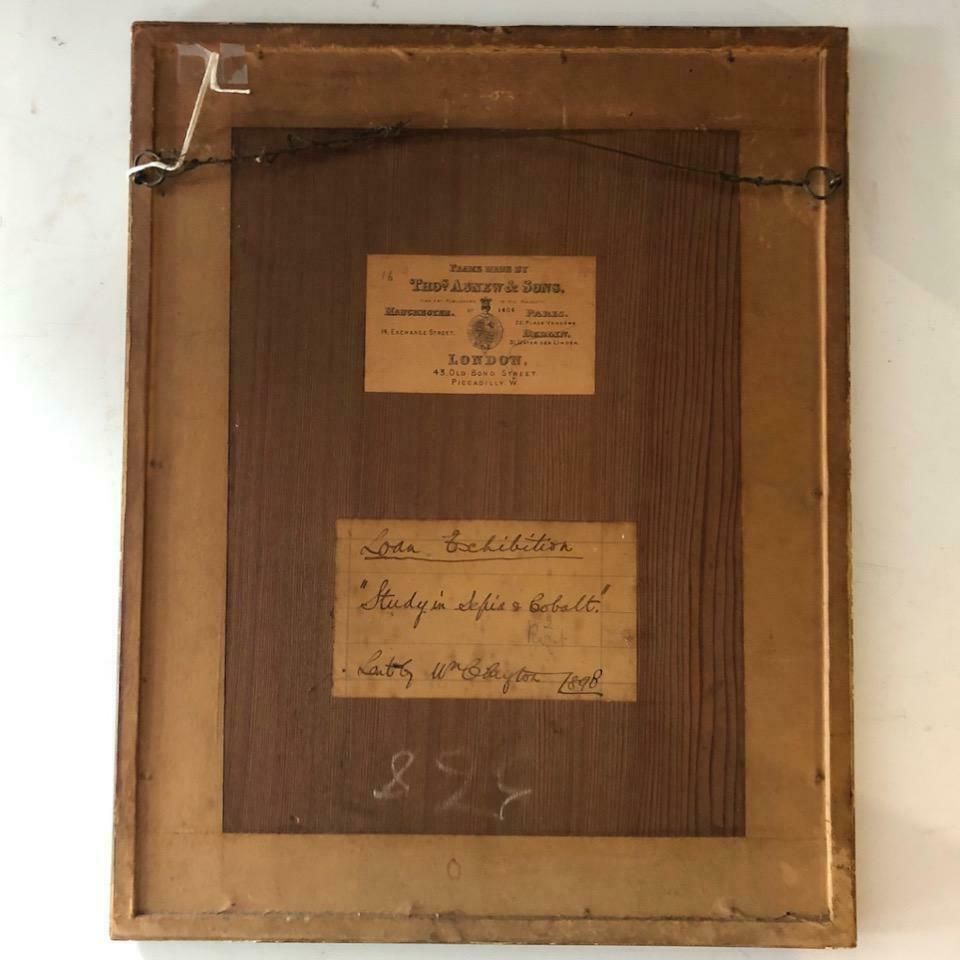 16
FRAME MADE BY
THOS AGNEW & SONS,
MANCHESTER. PARIS.
14, EXCHANGE STREET. 22, PLACE VENDÔME
BERLIN.
31, UNTER DEN LINDEN
LONDON,
43, OLD BOND STREET
PICCADILLY. W.
Loan Exhibition
"Study in Sepia & Cobalt."
Lent by Wm Clayton 1898